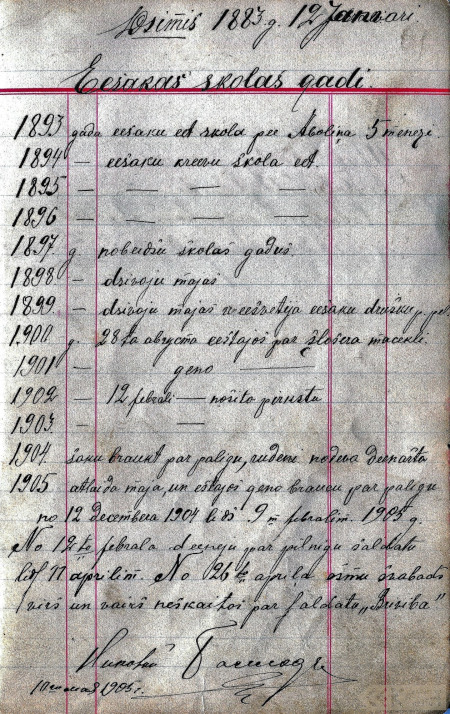 Dsimis 1883 g. 12 Janvari.
Eesakas skolas gadi.
1893 gada eesaku eet skola pee Āboliņa 5 menezi.
1894 — eesaku kreevu skola eet.
1895 — — — —
1896 — — — —
1897 g. nobeidsu skolas gadus.
1898 — dsivoju majas
1899 — dsivoju majas eesaku
1900 g. 28ta augusta eestajos par mācekli.
1901 — geno —
1902 — 12 febrali — nosita pirkstu
1903 — —
1904 saku braukt par paligu, rudeni nodeva
1905 atlaida maja, un estajos geno braucu par paligu
no 12 decembera 1904 lids 9 m febralim. 1905 g.
No 12 to febrala deeneju par pilnigu saldatu
lids 11 aprilim. No 26 to aprila esmu svabads
virs un vairs neskaitos par saldatu „Briviba"
Николай
10 мая 1905 г.